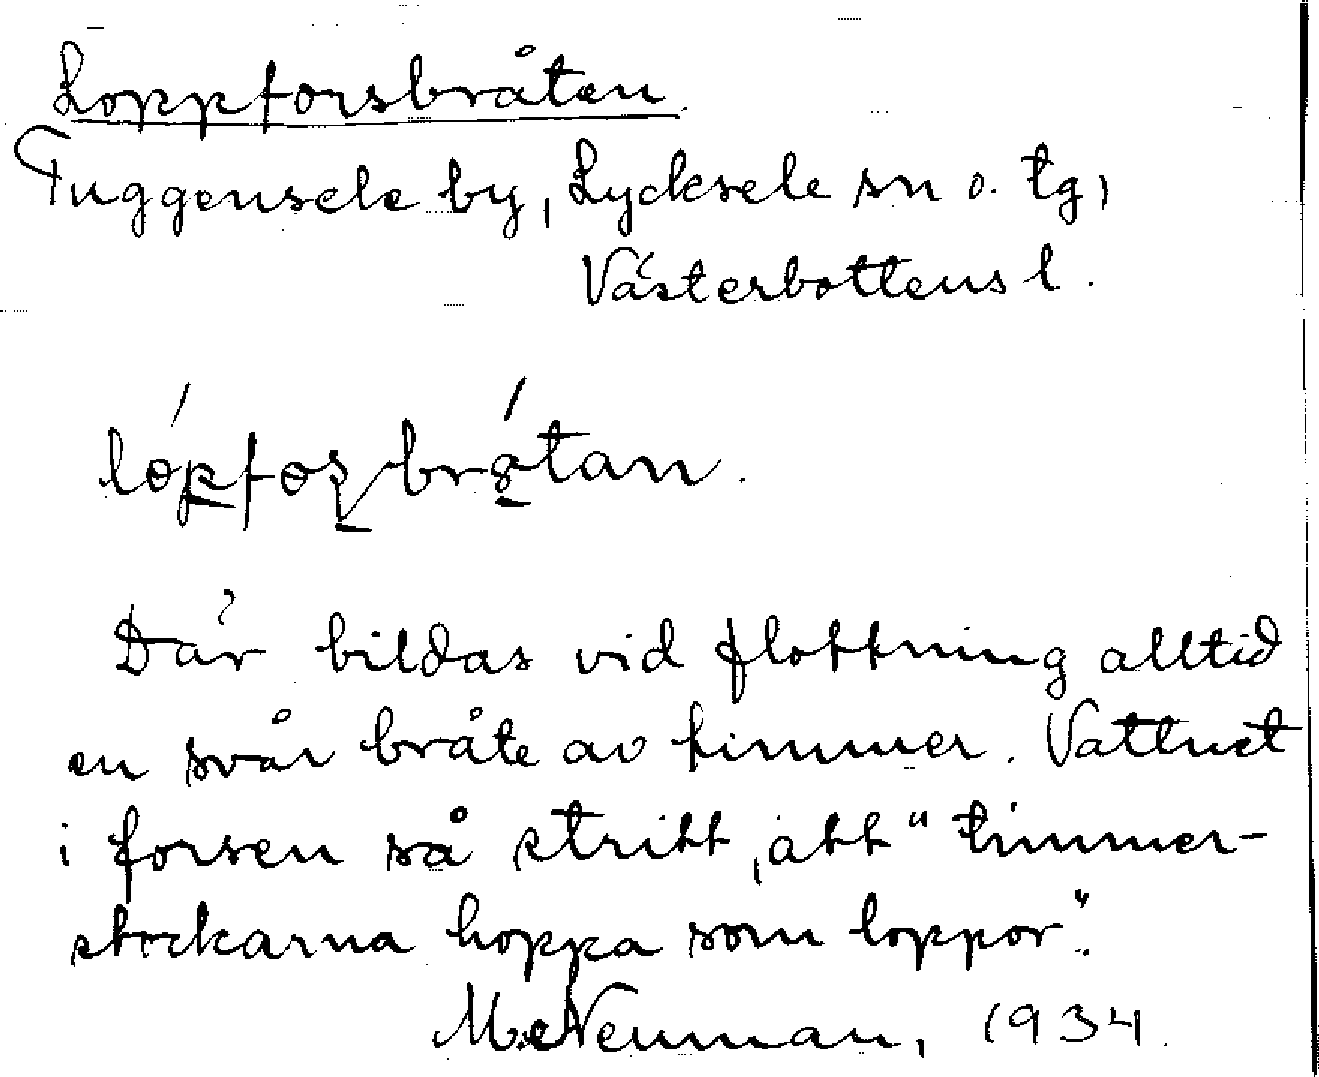 Loppforsbråten.
Tuggensele by, Lycksele sn o. tg,
Västerbottens l.
Där bildas vid flottning alltid
en svår bråte av timmer. Vattnet
i forsen så stritt, att "timmer-
stockarna hoppa som loppor".
M. Neuman, 1934.